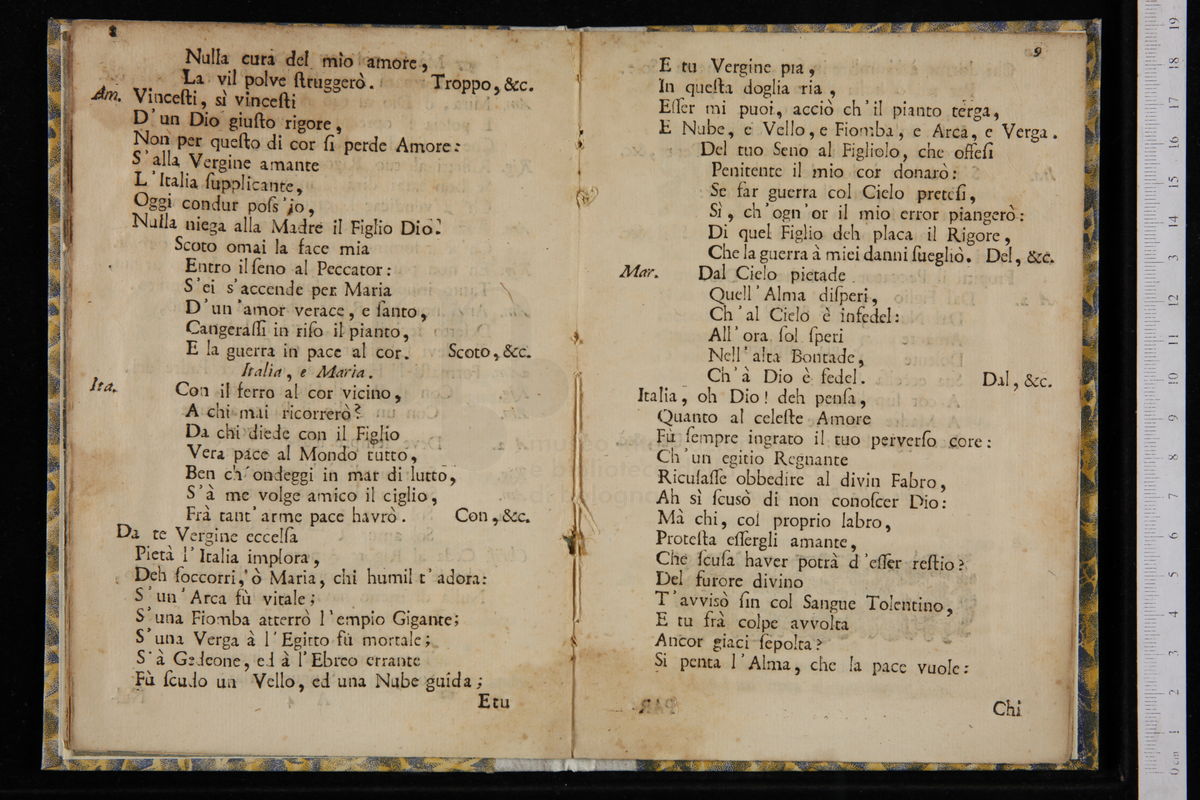 8
Nulla cura del mio amore,
La vil polve ſtruggerò. Troppo, &c.
Am. Vinceſti, sì vinceſti
D'un Dio giuſto rigore,
Non per queſto di cor ſi perde Amore:
S'alla Vergine amante
L'Italia ſupplicante,
Oggi condur poſs'io,
Nulla niega alla Madre il Figlio Dio.
Scoto omai la face mia
Entro il ſeno al Peccator:
S'ei s'accende per Maria
D'un'amor verace, e ſanto,
Cangeraſſi in riſo il pianto,
E la guerra in pace al cor. Scoto, &c.
Italia, e Maria.
Ita. Con il ferro al cor vicino,
A chi mai ricorrerò?
Da chi diede con il Figlio
Vera pace al Mondo tutto,
Ben ch'ondeggi in mar di lutto,
S'à me volge amico il ciglio,
Frà tant'arme pace havrò. Con, &c.
Da te Vergine eccelſa
Pietà l'Italia implora,
Deh ſoccorri, ò Maria, chi humil t'adora:
S'un'Arca fù vitale;
S'una Fiomba atterrò l'empio Gigante;
S'una Verga à l'Egitto fù mortale;
S'à Gedeone, ed à l'Ebreo errante
Fù ſcudo un Vello, ed una Nube guida;
Etu
9
E tu Vergine pia,
In queſta doglia ria,
Eſſer mi puoi, acciò ch'il pianto terga,
E Nube, e Vello, e Fiomba, e Arca, e Verga.
Del tuo Seno al Figliolo, che offeſi
Penitente il mio cor donarò:
Se far guerra col Cielo preteſi,
Sì, ch'ogn'or il mio error piangerò:
Di quel Figlio deh placa il Rigore,
Che la guerra à miei danni ſuegliò. Del, &c.
Mar. Dal Cielo pietade
Quell'Alma diſperi,
Ch'al Cielo è infedel:
All'ora ſol ſperi
Nell'alta Bontade,
Ch'à Dio è fedel. Dal, &c.
Italia, oh Dio! deh penſa,
Quanto al celeſte Amore
Fù ſempre ingrato il tuo perverſo core:
Ch'un egitio Regnante
Ricuſaſſe obbedire al divin Fabro,
Ah sì ſcusò di non conoſcer Dio:
Mà chi, col proprio labro,
Proteſta eſſergli amante,
Che ſcuſa haver potrà d'eſſer reſtio?
Del furore divino
T'avvisò ſin col Sangue Tolentino,
E tu frà colpe avvolta
Ancor giaci ſepolta?
Si penta l'Alma, che la pace vuole:
Chi